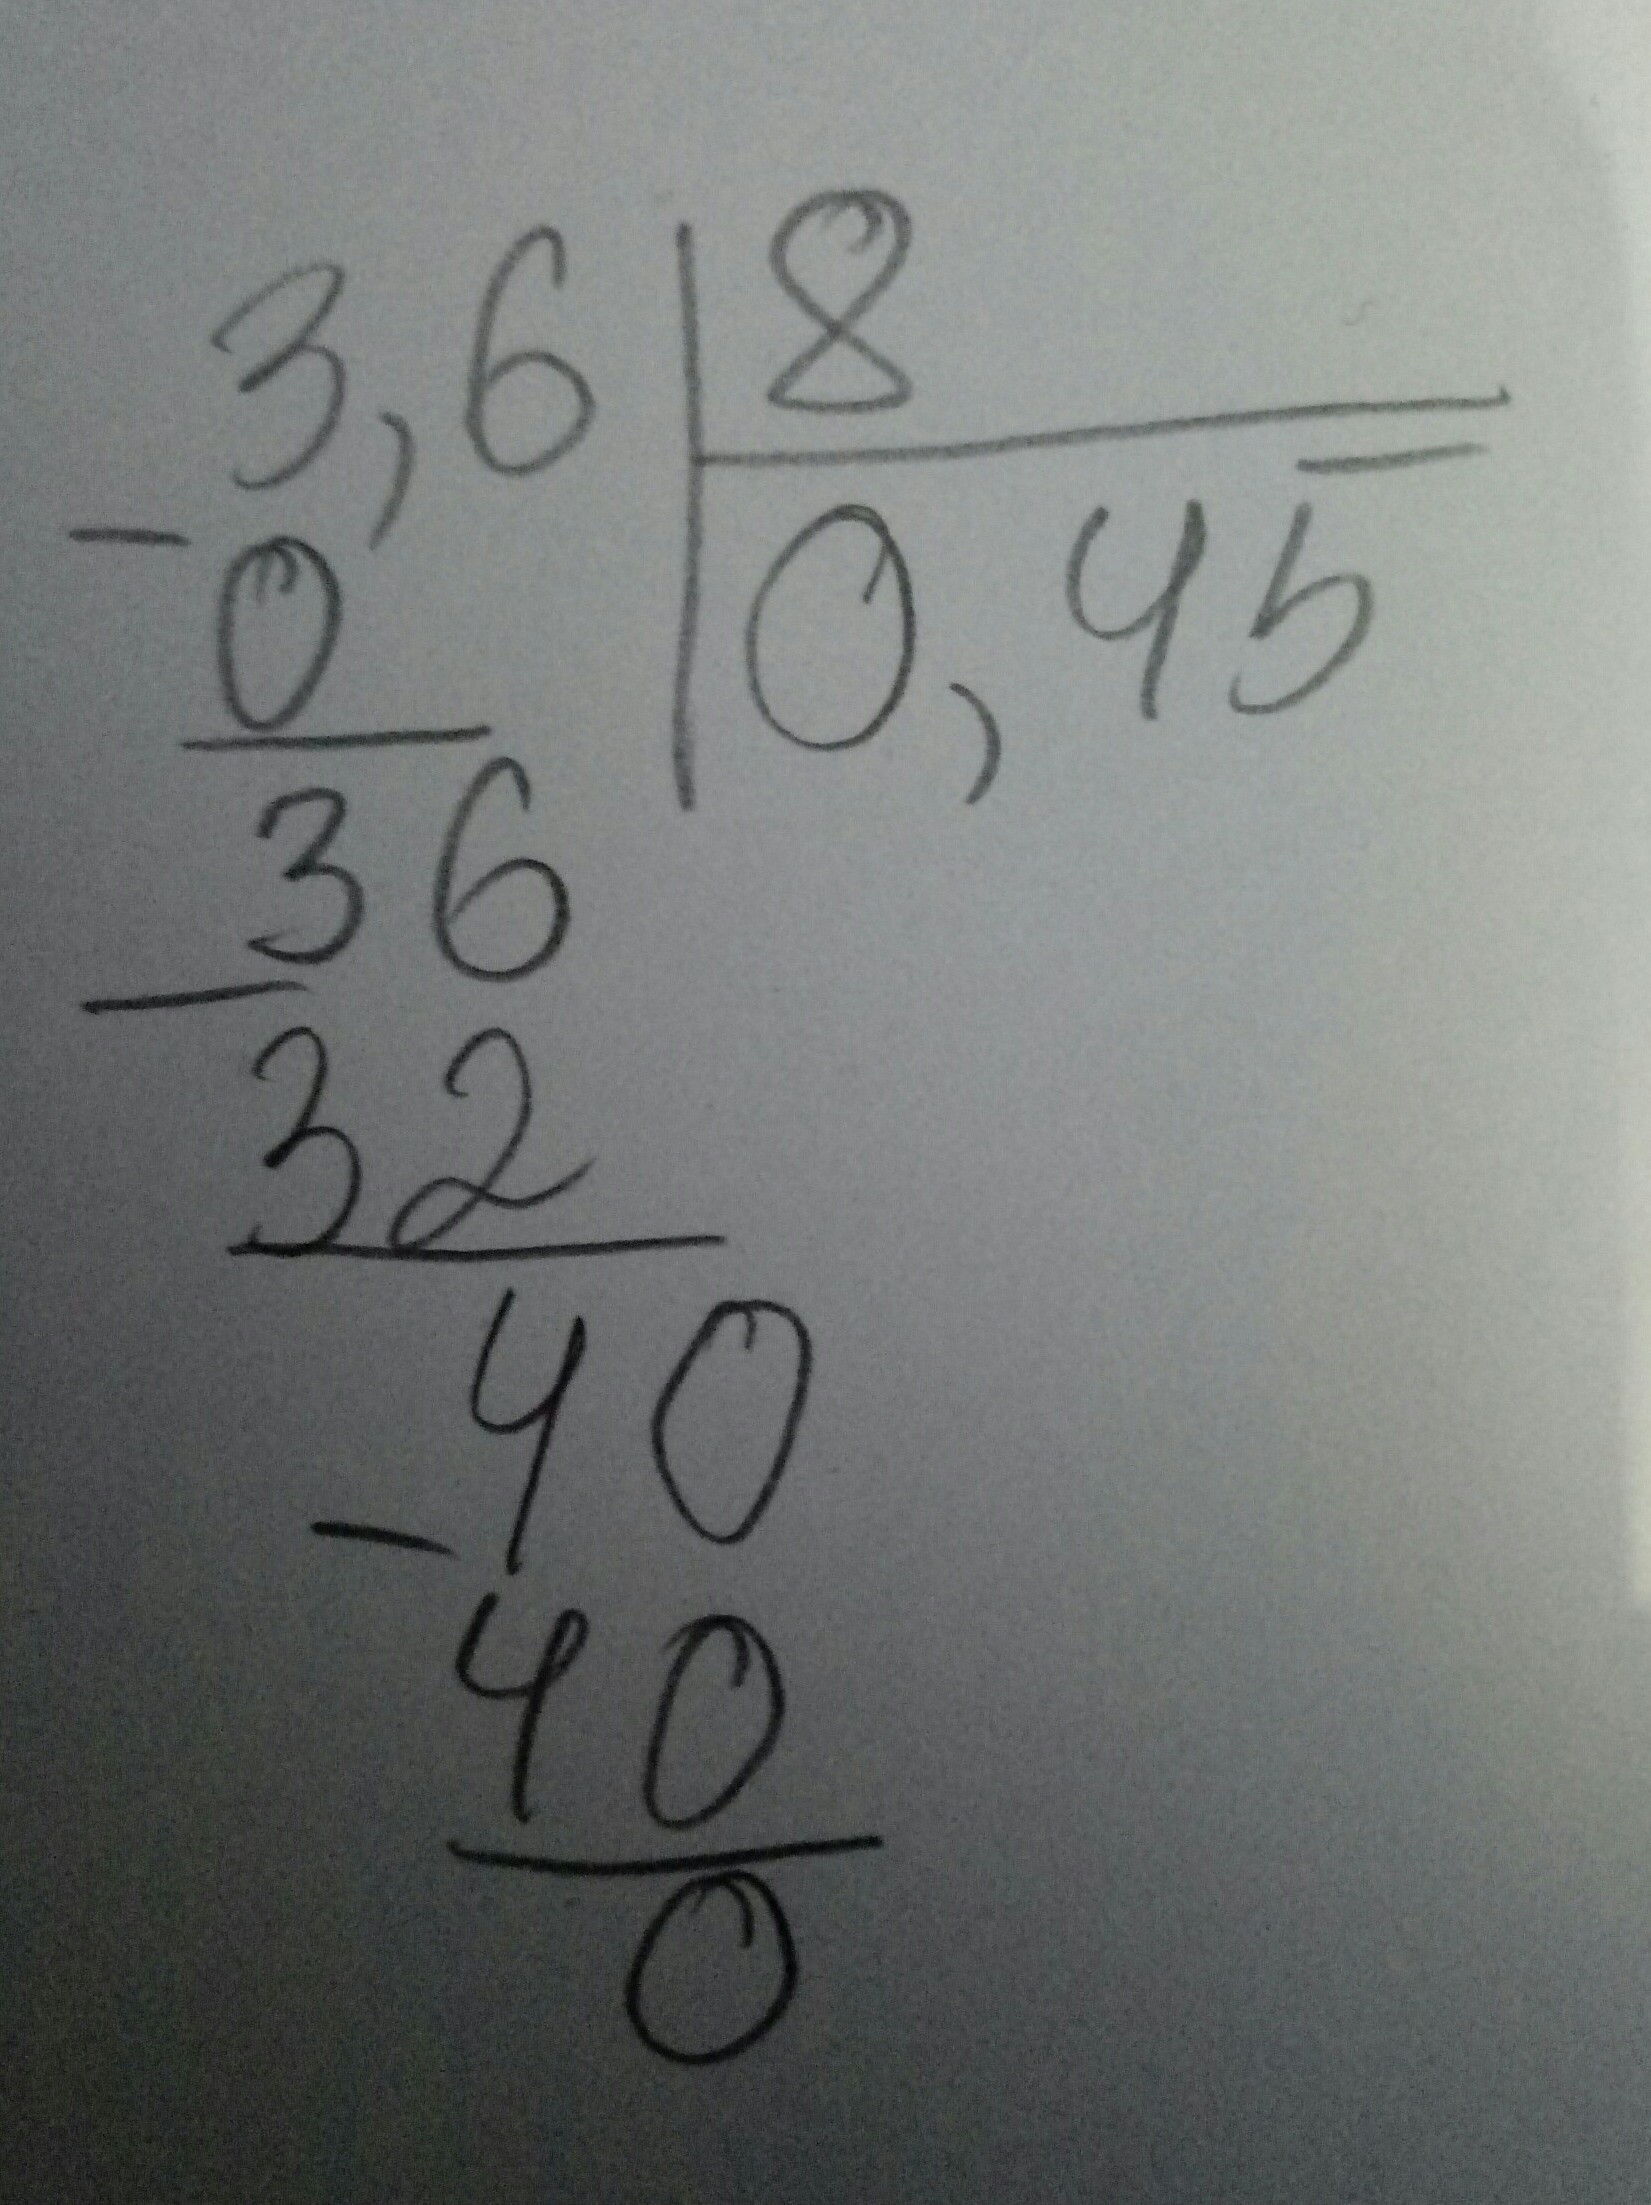 3,6 8
0,45
- 0
36
- 32
40
- 40
0